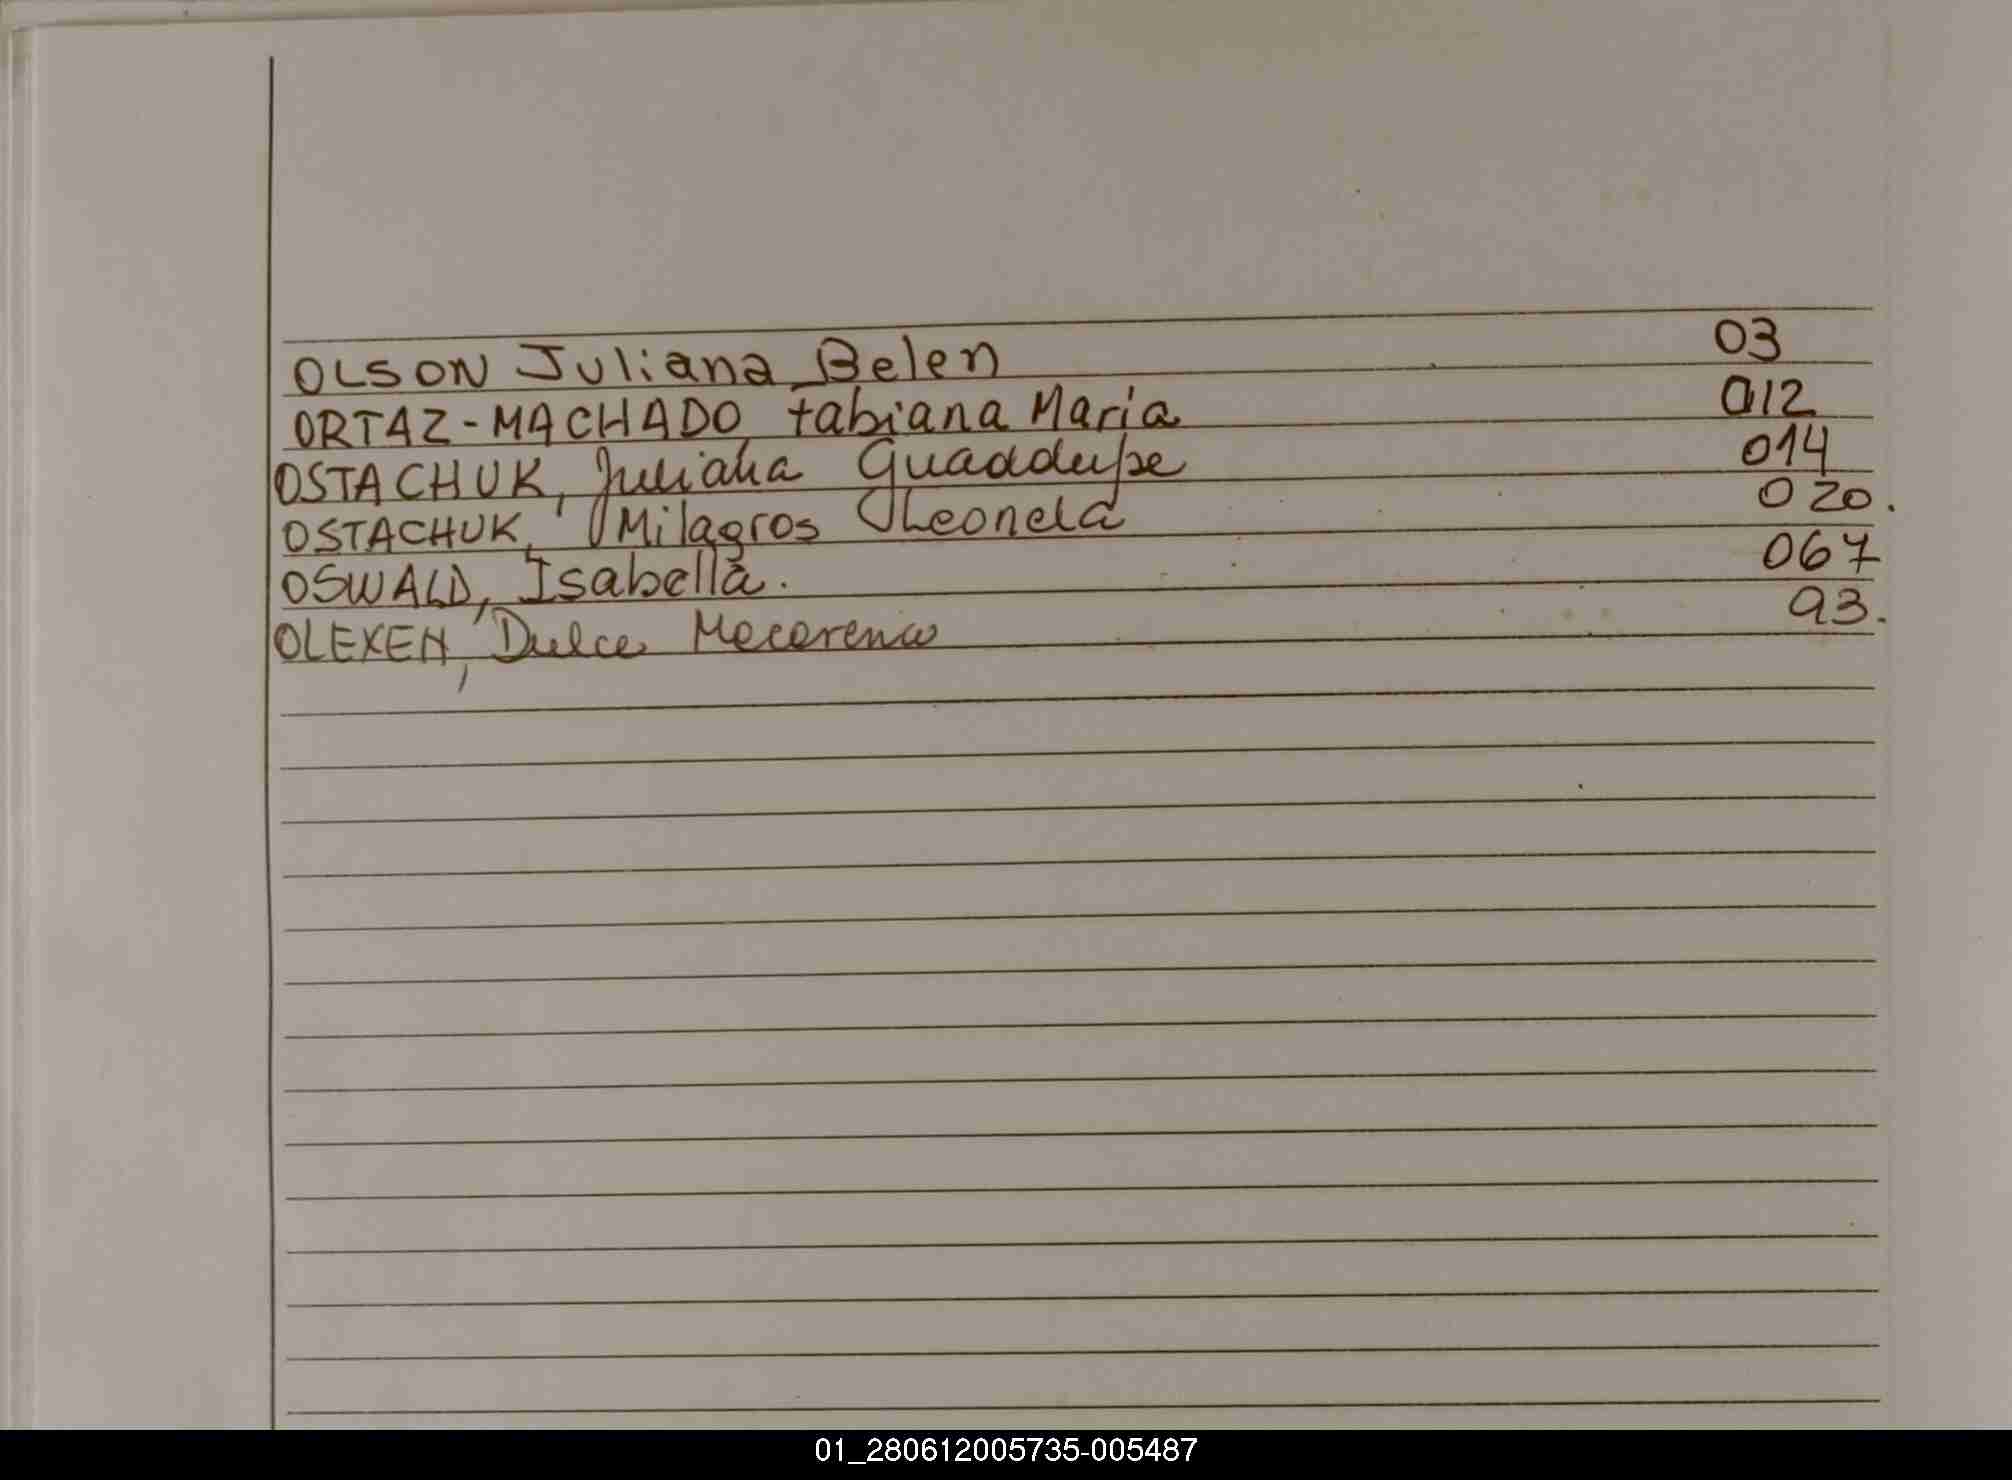 OLSON Juliana Belen 03
ORTAZ-MACHADO, Fabiana Maria 012
OSTACHUK, Juliana Guaddupe 014
OSTACHUK, Milagros Leonela 020.
OSWALD, Isabella. 067
OLEXEN, Dulce Macarena 93.
01_280612005735-005487